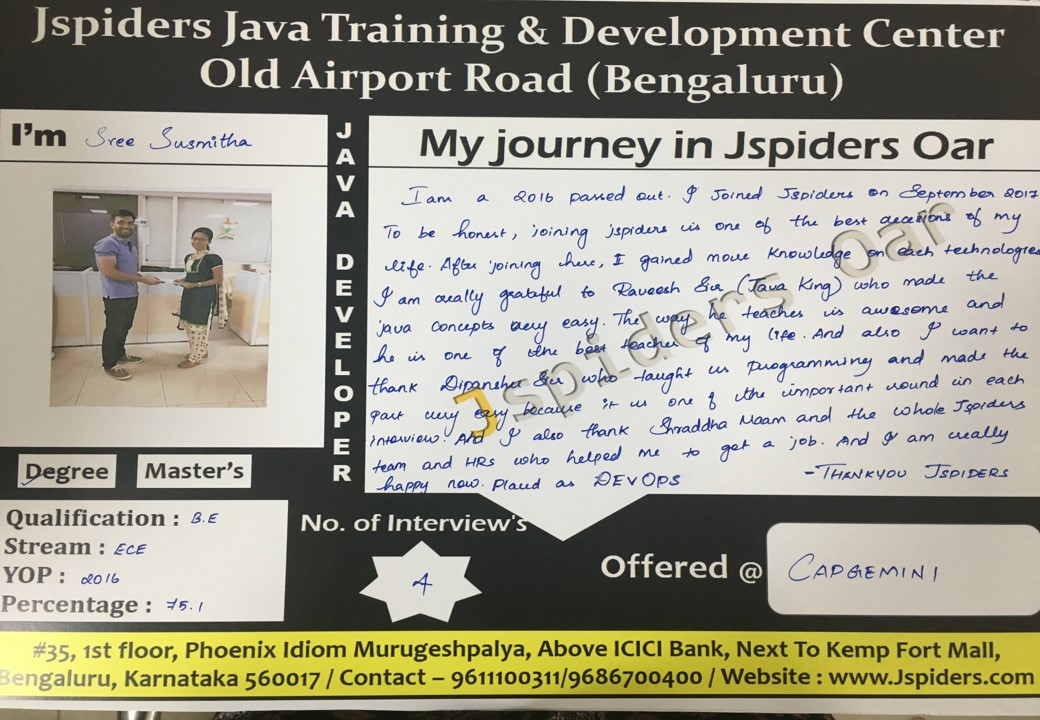 Jspiders Java Training & Development Center
Old Airport Road (Bengaluru)
I'm Sree Susmitha
JAVA DEVELOPER
My journey in Jspiders Oar
I am a 2016 passed out. I Joined Jspiders on September 2017
To be honest, joining jspiders is one of the best decisions of my
life. After joining here, I gained more knowledge on each technologies
I am really grateful to Raveesh Sir (Java King) who made the
java concepts very easy. The way he teaches is awesome and
he is one of the best teacher of my life. And also I want to
thank Dipanshu Sir who taught us programming and made the
part very easy because it is one of the important round in each
interview. And I also thank Shraddha Maam and the whole Jspiders
team and HRs who helped me to get a job. And I am really
happy now. Placed as DEVOPS
- THANKYOU JSPIDERS
Jspiders Oar
Degree Master's
Qualification : B.E
Stream : ECE
YOP : 2016
Percentage : 75.1
No. of Interview's
4
Offered @ CAPGEMINI
#35, 1st floor, Phoenix Idiom Murugeshpalya, Above ICICI Bank, Next To Kemp Fort Mall,
Bengaluru, Karnataka 560017 / Contact – 9611100311/9686700400 / Website : www.Jspiders.com